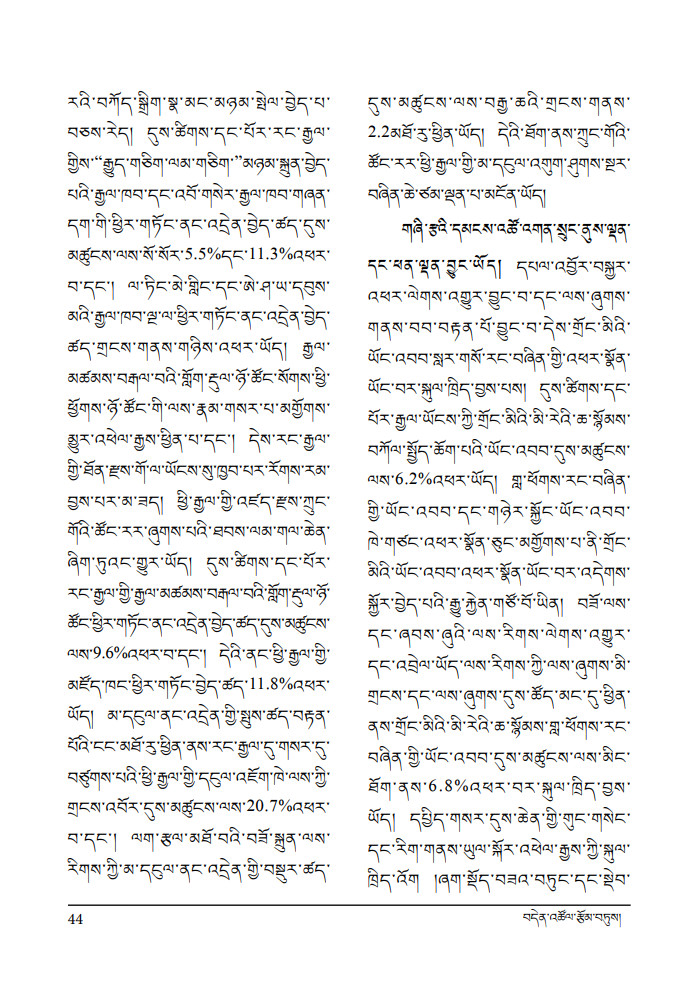 རའི་བཀོད་སྒྲིག་སྣ་མང་མཉམ་སྤེལ་བྱེད་པ་
བཅས་རེད། དུས་ཚིགས་དང་པོར་རང་རྒྱལ་
གྱིས་“རྒྱུད་གཅིག་ལམ་གཅིག་”མཉམ་སྐྲུན་བྱེད་
པའི་རྒྱལ་ཁབ་དང་འབོ་གསེར་རྒྱལ་ཁབ་གཞན་
དག་གི་ཕྱིར་གཏོང་ནང་འདྲེན་བྱེད་ཚད་དུས་
མཚུངས་ལས་སོ་སོར་5.5%དང་11.3%འཕར་
བ་དང་། ལ་ཏིང་མེ་གླིང་དང་ཨེ་ཤ་ཡ་དབུས་
མའི་རྒྱལ་ཁབ་ལྔ་ལ་ཕྱིར་གཏོང་ནང་འདྲེན་བྱེད་
ཚད་གྲངས་གནས་གཉིས་འཕར་ཡོད། རྒྱལ་
མཚམས་བརྒལ་བའི་གློག་རྡུལ་ཉོ་ཚོང་སོགས་ཕྱི་
ཕྱོགས་ཉོ་ཚོང་གི་ལས་རྣམ་གསར་པ་མགྱོགས་
མྱུར་འཕེལ་རྒྱས་ཕྱིན་པ་དང་། དེས་རང་རྒྱལ་
གྱི་ཐོན་རྫས་གོ་ལ་ཡོངས་སུ་ཁྱབ་པར་རོགས་རམ་
བྱས་པར་མ་ཟད། ཕྱི་རྒྱལ་གྱི་འཛད་རྫས་ཀྲུང་
གོའི་ཚོང་རར་ཞུགས་པའི་ཐབས་ལམ་གལ་ཆེན་
ཞིག་ཏུའང་གྱུར་ཡོད། དུས་ཚིགས་དང་པོར་
རང་རྒྱལ་གྱི་རྒྱལ་མཚམས་བརྒལ་བའི་གློག་རྡུལ་ཉོ་
ཚོང་ཕྱིར་གཏོང་ནང་འདྲེན་བྱེད་ཚད་དུས་མཚུངས་
ལས་9.6%འཕར་བ་དང་། དེའི་ནང་ཕྱི་རྒྱལ་གྱི་
མཛོད་ཁང་ཕྱིར་གཏོང་བྱེད་ཚད་11.8%འཕར་
ཡོད། མ་དངུལ་ནང་འདྲེན་གྱི་སྤུས་ཚད་བརྟན་
པོའི་ངང་མཐོ་རུ་ཕྱིན་ནས་རང་རྒྱལ་དུ་གསར་དུ་
བཙུགས་པའི་ཕྱི་རྒྱལ་གྱི་དངུལ་འཇོག་ཁེ་ལས་ཀྱི་
གྲངས་འབོར་དུས་མཚུངས་ལས་20.7%འཕར་
བ་དང་། ལག་རྩལ་མཐོ་བའི་བཟོ་སྐྲུན་ལས་
རིགས་ཀྱི་མ་དངུལ་ནང་འདྲེན་གྱི་བསྡུར་ཚད་
དུས་མཚུངས་ལས་བརྒྱ་ཆའི་གྲངས་གནས་
2.2མཐོ་རུ་ཕྱིན་ཡོད། དེའི་ཐོག་ནས་ཀྲུང་གོའི་
ཚོང་རར་ཕྱི་རྒྱལ་གྱི་མ་དངུལ་འགུག་ཤུགས་སྔར་
བཞིན་ཆེ་ཙམ་ལྡན་པ་མངོན་ཡོད།
གཞི་རྩའི་དམངས་འཚོ་འགན་སྲུང་ནུས་ལྡན་
དང་ཕན་ལྡན་བྱུང་ཡོད། དཔལ་འབྱོར་བསྐྱར་
འཕར་ལེགས་འགྱུར་བྱུང་བ་དང་ལས་ཞུགས་
གནས་བབ་བརྟན་པོ་བྱུང་བ་དེས་གྲོང་མིའི་
ཡོང་འབབ་སླར་གསོ་རང་བཞིན་གྱི་འཕར་སྣོན་
ཡོང་བར་སྐུལ་ཁྲིད་བྱས་པས། དུས་ཚིགས་དང་
པོར་རྒྱལ་ཡོངས་ཀྱི་གྲོང་མིའི་མི་རེའི་ཆ་སྙོམས་
བཀོལ་སྤྱོད་ཆོག་པའི་ཡོང་འབབ་དུས་མཚུངས་
ལས་6.2%འཕར་ཡོད། གླ་ཕོགས་རང་བཞིན་
གྱི་ཡོང་འབབ་དང་གཉེར་སྐྱོང་ཡོང་འབབ་
ཁེ་གཙང་འཕར་སྣོན་ཅུང་མགྱོགས་པ་ནི་གྲོང་
མིའི་ཡོང་འབབ་འཕར་སྣོན་ཡོང་བར་འདེགས་
སྐྱོར་བྱེད་པའི་རྒྱུ་རྐྱེན་གཙོ་བོ་ཡིན། བཟོ་ལས་
དང་ཞབས་ཞུའི་ལས་རིགས་ལེགས་འགྱུར་
དང་འབྲེལ་ཡོད་ལས་རིགས་ཀྱི་ལས་ཞུགས་མི་
གྲངས་དང་ལས་ཞུགས་དུས་ཚོད་མང་དུ་ཕྱིན་
ནས་གྲོང་མིའི་མི་རེའི་ཆ་སྙོམས་གླ་ཕོགས་རང་
བཞིན་གྱི་ཡོང་འབབ་དུས་མཚུངས་ལས་མིང་
ཐོག་ནས་6.8%འཕར་བར་སྐུལ་ཁྲིད་བྱས་
ཡོད། དཔྱིད་གསར་དུས་ཆེན་གྱི་གུང་གསེང་
དང་རིག་གནས་ཡུལ་སྐོར་འཕེལ་རྒྱས་ཀྱི་སྐུལ་
ཁྲིད་འོག །ཞག་སྡོད་བཟའ་བཏུང་དང་སྡེབ་
44 བདེན་འཚོལ་རྩོམ་བཏུས།